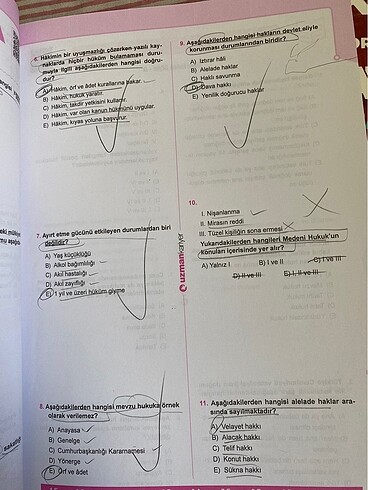 6. Hâkimin bir uyuşmazlığı çözerken yazılı kay-
naklarda hiçbir hüküm bulamaması duru-
muyla ilgili aşağıdakilerden hangisi doğru-
dur?
A) Hâkim, örf ve âdet kurallarına bakar.
B) Hâkim, hukuk yaratır.
C) Hâkim, takdir yetkisini kullanır.
D) Hâkim, var olan kanun hükmünü uygular.
E) Hâkim, kıyas yoluna başvurur.
7. Ayırt etme gücünü etkileyen durumlardan biri
değildir?
A) Yaş küçüklüğü
B) Alkol bağımlılığı
C) Akıl hastalığı
D) Akıl zayıflığı
E) 1 yıl ve üzeri hüküm giyme
8. Aşağıdakilerden hangisi mevzu hukuka örnek
olarak verilemez?
A) Anayasa
B) Genelge
C) Cumhurbaşkanlığı Kararnamesi
D) Yönerge
E) Örf ve âdet
uzmankariyer
9. Aşağıdakilerden hangisi hakların devlet eliyle
korunması durumlarından biridir?
A) Iztırar hâli
B) Alelade haklar
C) Haklı savunma
D) Dava hakkı
E) Yenilik doğurucu haklar
10.
I. Nişanlanma
II. Mirasın reddi
III. Tüzel kişiliğin sona ermesi
Yukarıdakilerden hangileri Medeni Hukuk'un
konuları içerisinde yer alır?
A) Yalnız I B) I ve II C) I ve III
D) II ve III E) I, II ve III
11. Aşağıdakilerden hangisi alelade haklar ara-
sında sayılmaktadır?
A) Velayet hakkı
B) Alacak hakkı
C) Telif hakkı
D) Konut hakkı
E) Sükna hakkı